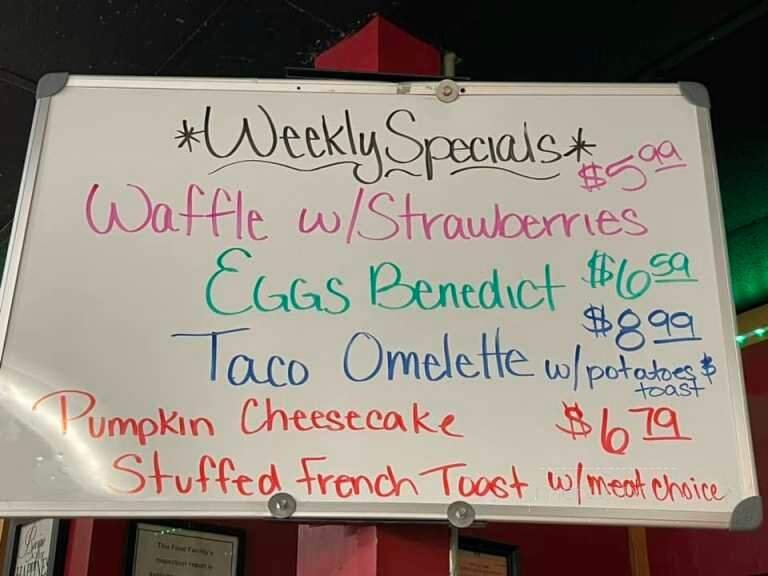 *Weekly Specials*
$5.99
Waffle w/Strawberries
Eggs Benedict $6.59
$8.99
Taco Omelette w/potatoes &
toast
Pumpkin Cheesecake $6.79
Stuffed French Toast w/meat choice
The Food Facility's
inspection report is